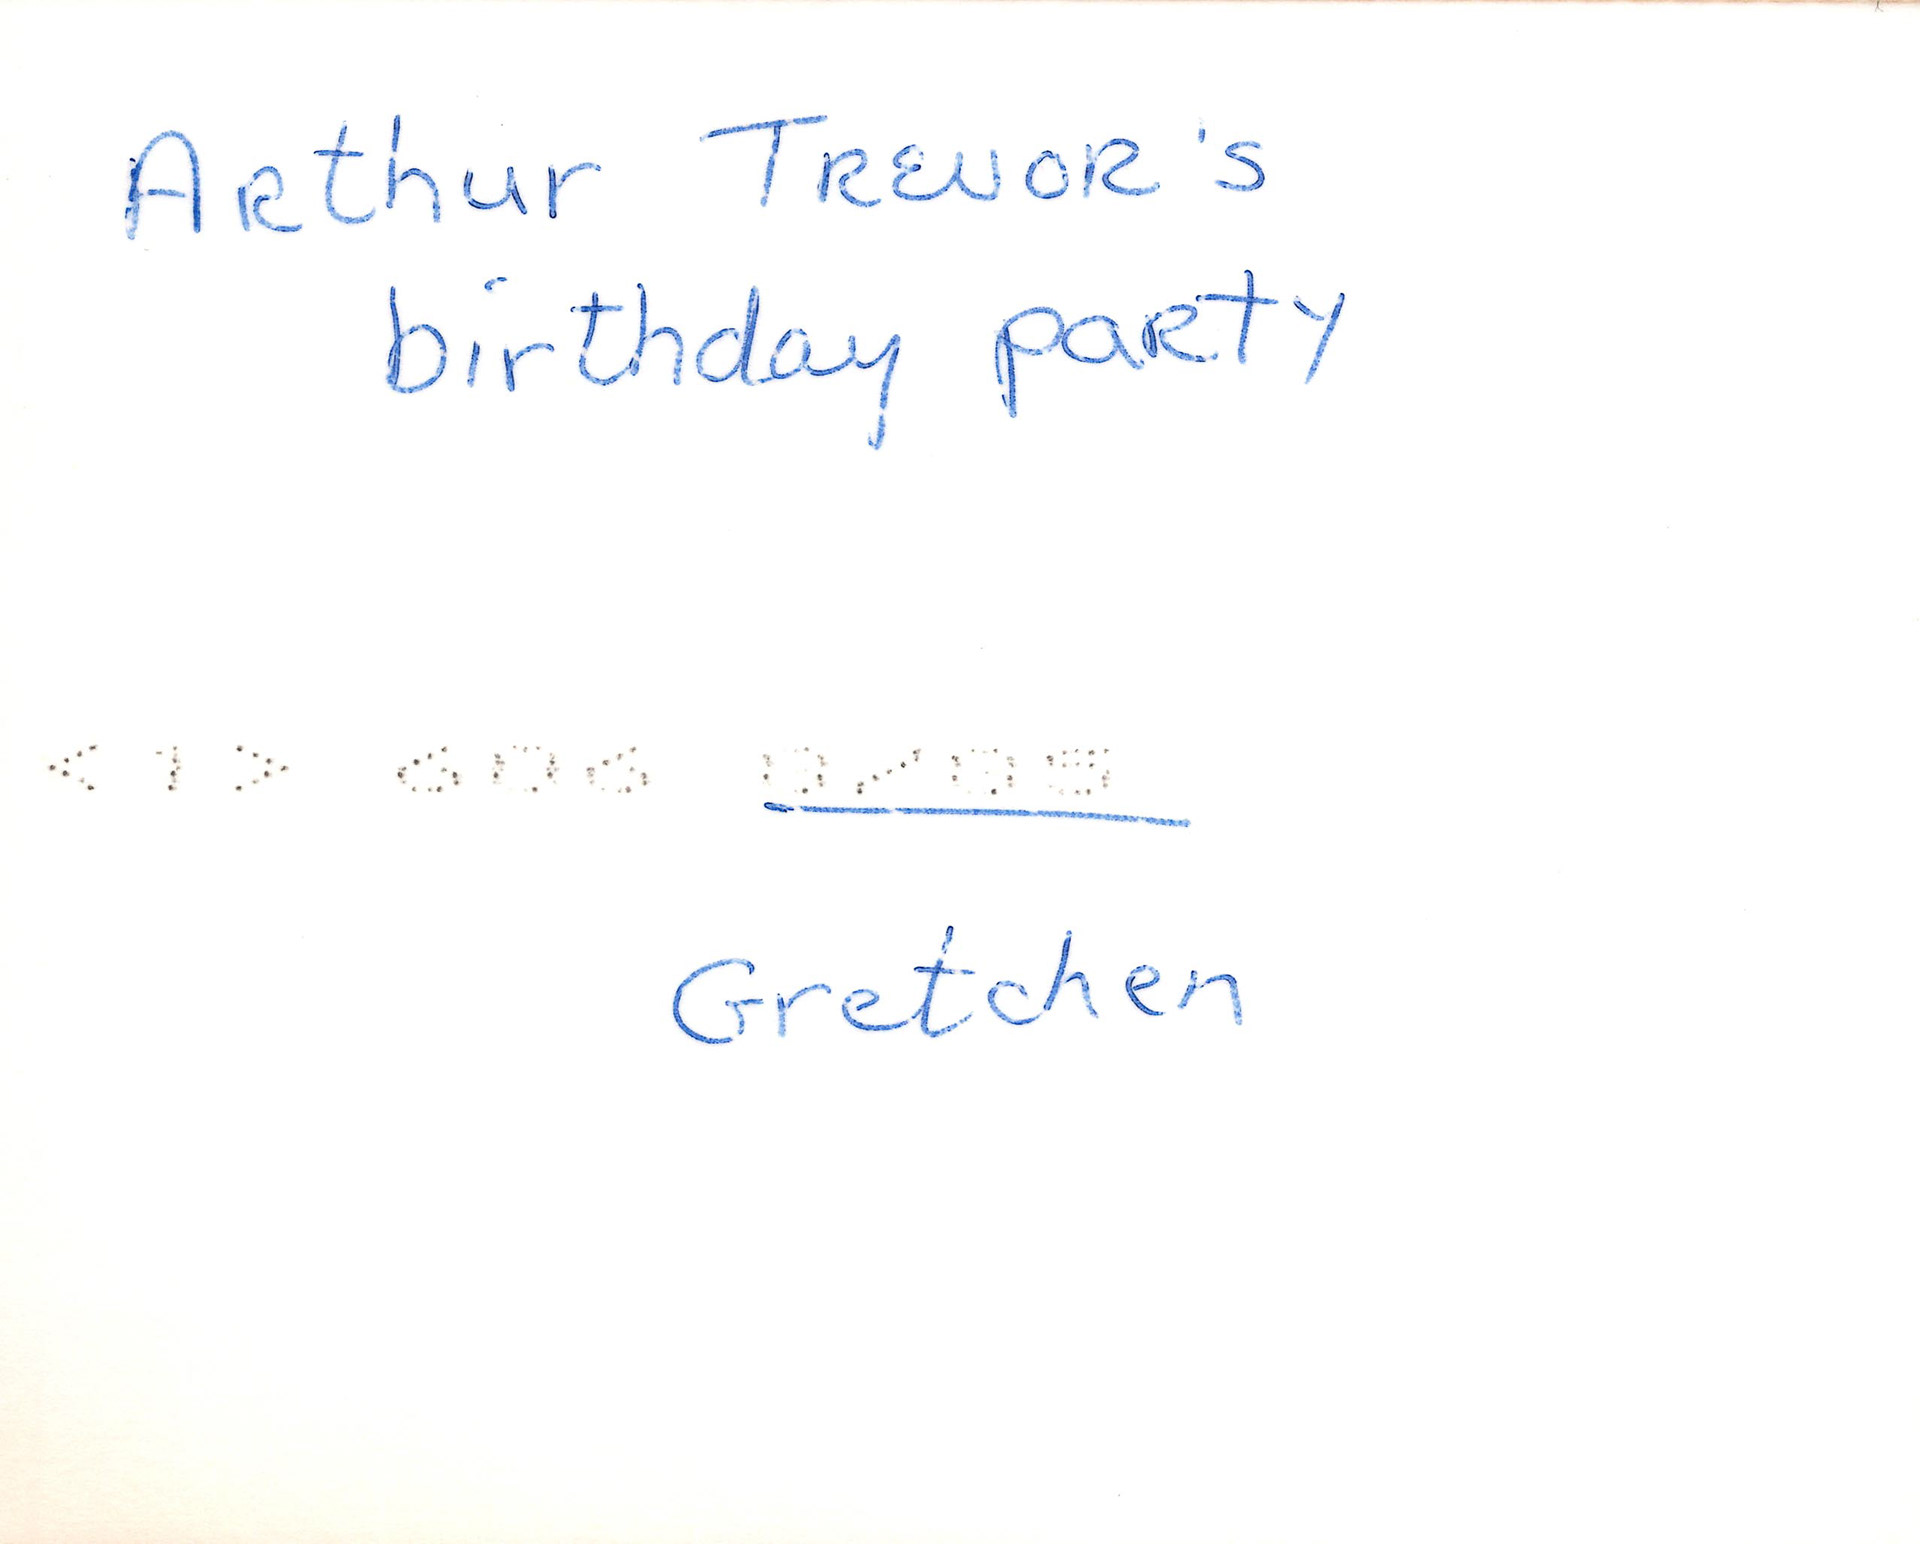 Arthur Trevor's
birthday party
< 1 > 606 8/05
Gretchen